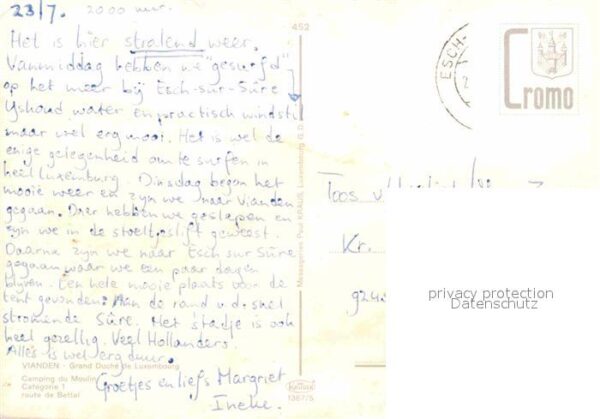 23/7. 20.00 uur.
Het is hier stralend weer.
Vanmiddag hebben we "gesurfd"
op het meer bij Esch-sur-Sûre
IJskoud water en practisch windstil
maar wel erg mooi. Het is wel de
enige gelegenheid om te surfen in
heel Luxemburg. Dinsdag begon het
mooie weer en zijn we naar Vianden
gegaan. Daar hebben we geslapen en
zijn we in de stoeltjeslift geweest.
Daarna zijn we naar Esch sur Sûre
gegaan waar we een paar dagen
blijven. Een hele mooie plaats voor de
tent gevonden: Aan de rand v.d. snel
stromende Sûre. Het stadje is ook
heel gezellig. Veel Hollanders!
Alles is wel erg duur.
Groetjes en liefs Margriet
Ineke.
VIANDEN - Grand Duché de Luxembourg
Camping du Moulin
Catégorie 1
route de Bettel
452
Messageries Paul KRAUS, Luxembourg
1387/5
ESCH-
Cromo
Toos
Kr.
924
privacy protection
Datenschutz